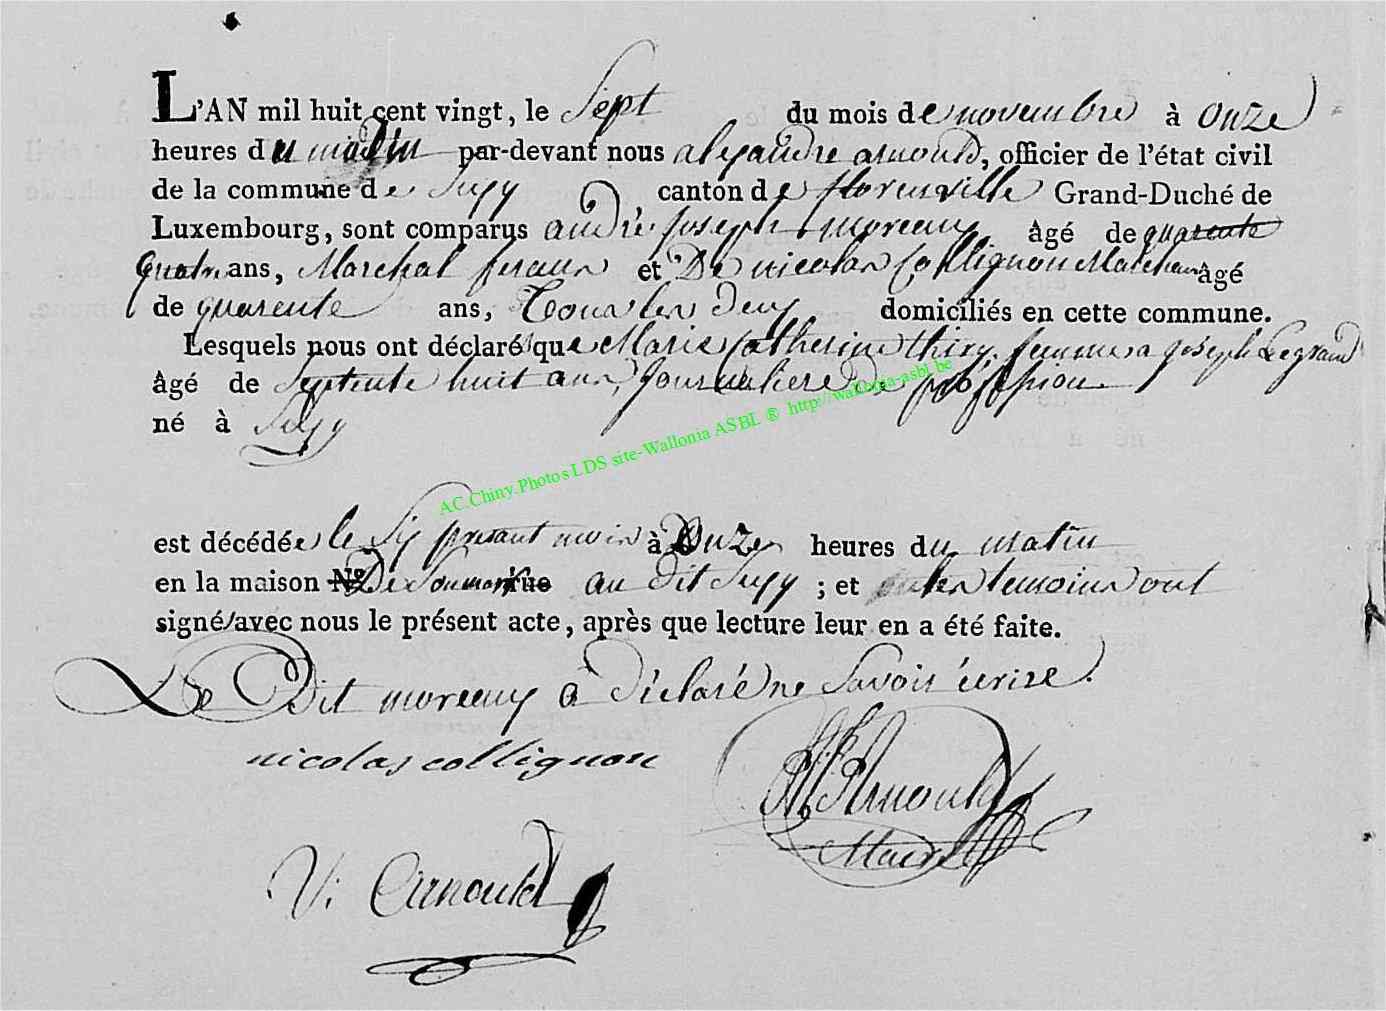 L'AN mil huit cent vingt, le Sept du mois de novembre à onze
heures du matin par-devant nous alexandre arnould, officier de l'état civil
de la commune de Suxy canton de florenville Grand-Duché de
Luxembourg, sont comparus andré joseph moreaux âgé de quarente
quatre ans, Marchal feraun et De nicolas Collignon Marchau âgé
de quarente ans, Tous les deux domiciliés en cette commune.
Lesquels nous ont déclaré que Marie Catherine thiry femme a joseph Legrand
âgé de Septente huit ans, journaliere De profession
né à Suxy
AC.Chiny.Photos LDS site-Wallonia ASBL ® http://wallonia-asbl.be
est décédée le Six present mois à Onze heures du matin
en la maison N° De Son mari rue au dit Suxy ; et les temoins ont
signé avec nous le présent acte, après que lecture leur en a été faite.
Le Dit moreaux à Déclaré ne Savoir écrire.
nicolas collignon
Arnould
Maire
V. Arnould